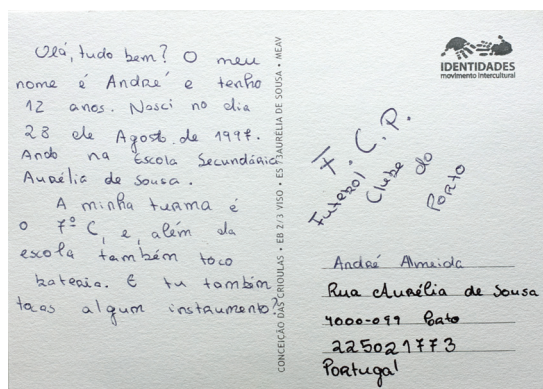 Olá, tudo bem? O meu
nome é André e tenho
12 anos. Nasci no dia
28 de Agost. de 1997.
Ando na Escola Secundária
Aurélia de Sousa.
A minha turma é
o 7º C, e, além da
escola também toco
bateria. E tu também
tocas algum instrumento?
CONCEIÇÃO DAS CRIOULAS • EB 2/3 VISO • ES /3AURÉLIA DE SOUSA • MEAV
IDENTIDADES
movimento intercultural
F.C.P.
Futebol Clube do Porto
André Almeida
Rua Aurélia de Sousa
4000-099 Porto
225021773
Portugal